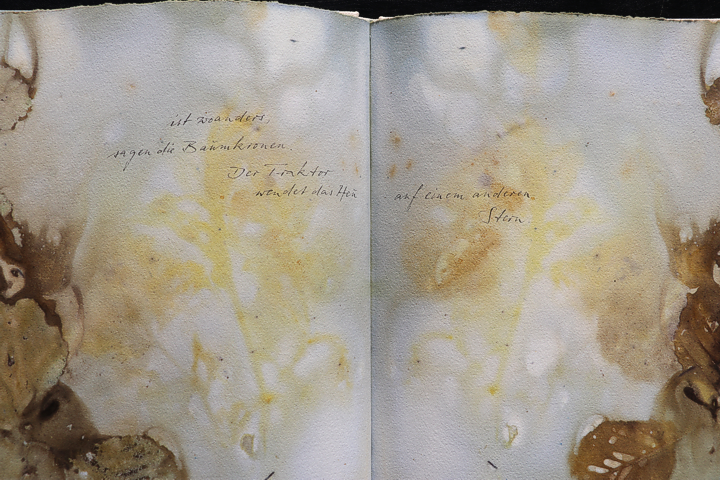 ist woanders,
sagen die Baumkronen.
Der Traktor
wendet das Heu
auf einem anderen
Stern.